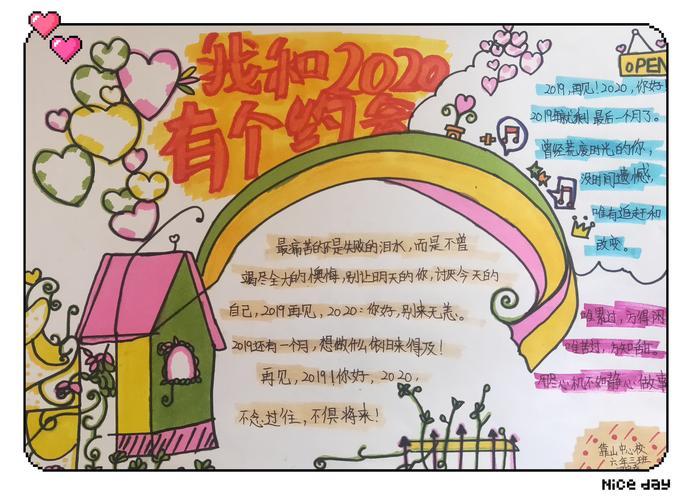 我和2020
有个约会
OPEN
2019,再见!2020,你好
2019年就剩最后一个月了。
曾经荒废时光的你,
没时间遗憾,
唯有追赶和
改变。
最痛苦的不是失败的泪水,而是不曾
竭尽全力的懊悔,别让明天的你,讨厌今天的
自己,2019再见,2020:你好,别来无恙。
2019还有一个月,想做什么依旧来得及!
再见,2019!你好,2020,
不念过往,不惧将来!
唯累过,方得闲
唯苦过,方知甜。
用尽心机不如静心做事
靠山中心校
六年三班
Nice day